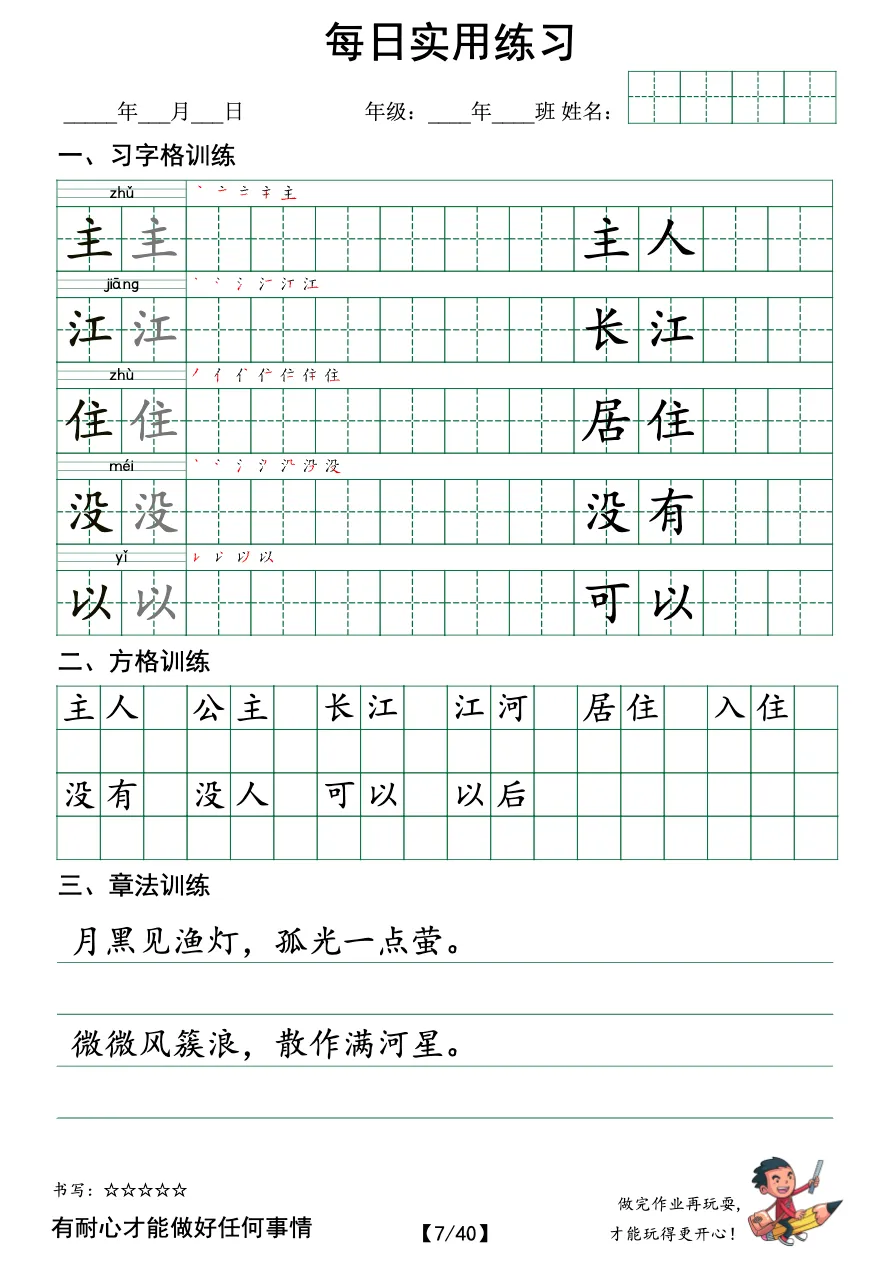 每日实用练习
_____年___月___日 年级：____年____班 姓名：
一、习字格训练
zhǔ
主 主 主人
jiāng
江 江 长江
zhù
住 住 居住
méi
没 没 没有
yǐ
以 以 可以
二、方格训练
主人 公主 长江 江河 居住 入住
没有 没人 可以 以后
三、章法训练
月黑见渔灯，孤光一点萤。
微微风簇浪，散作满河星。
书写：☆☆☆☆☆
做完作业再玩耍，
有耐心才能做好任何事情 【7/40】 才能玩得更开心！